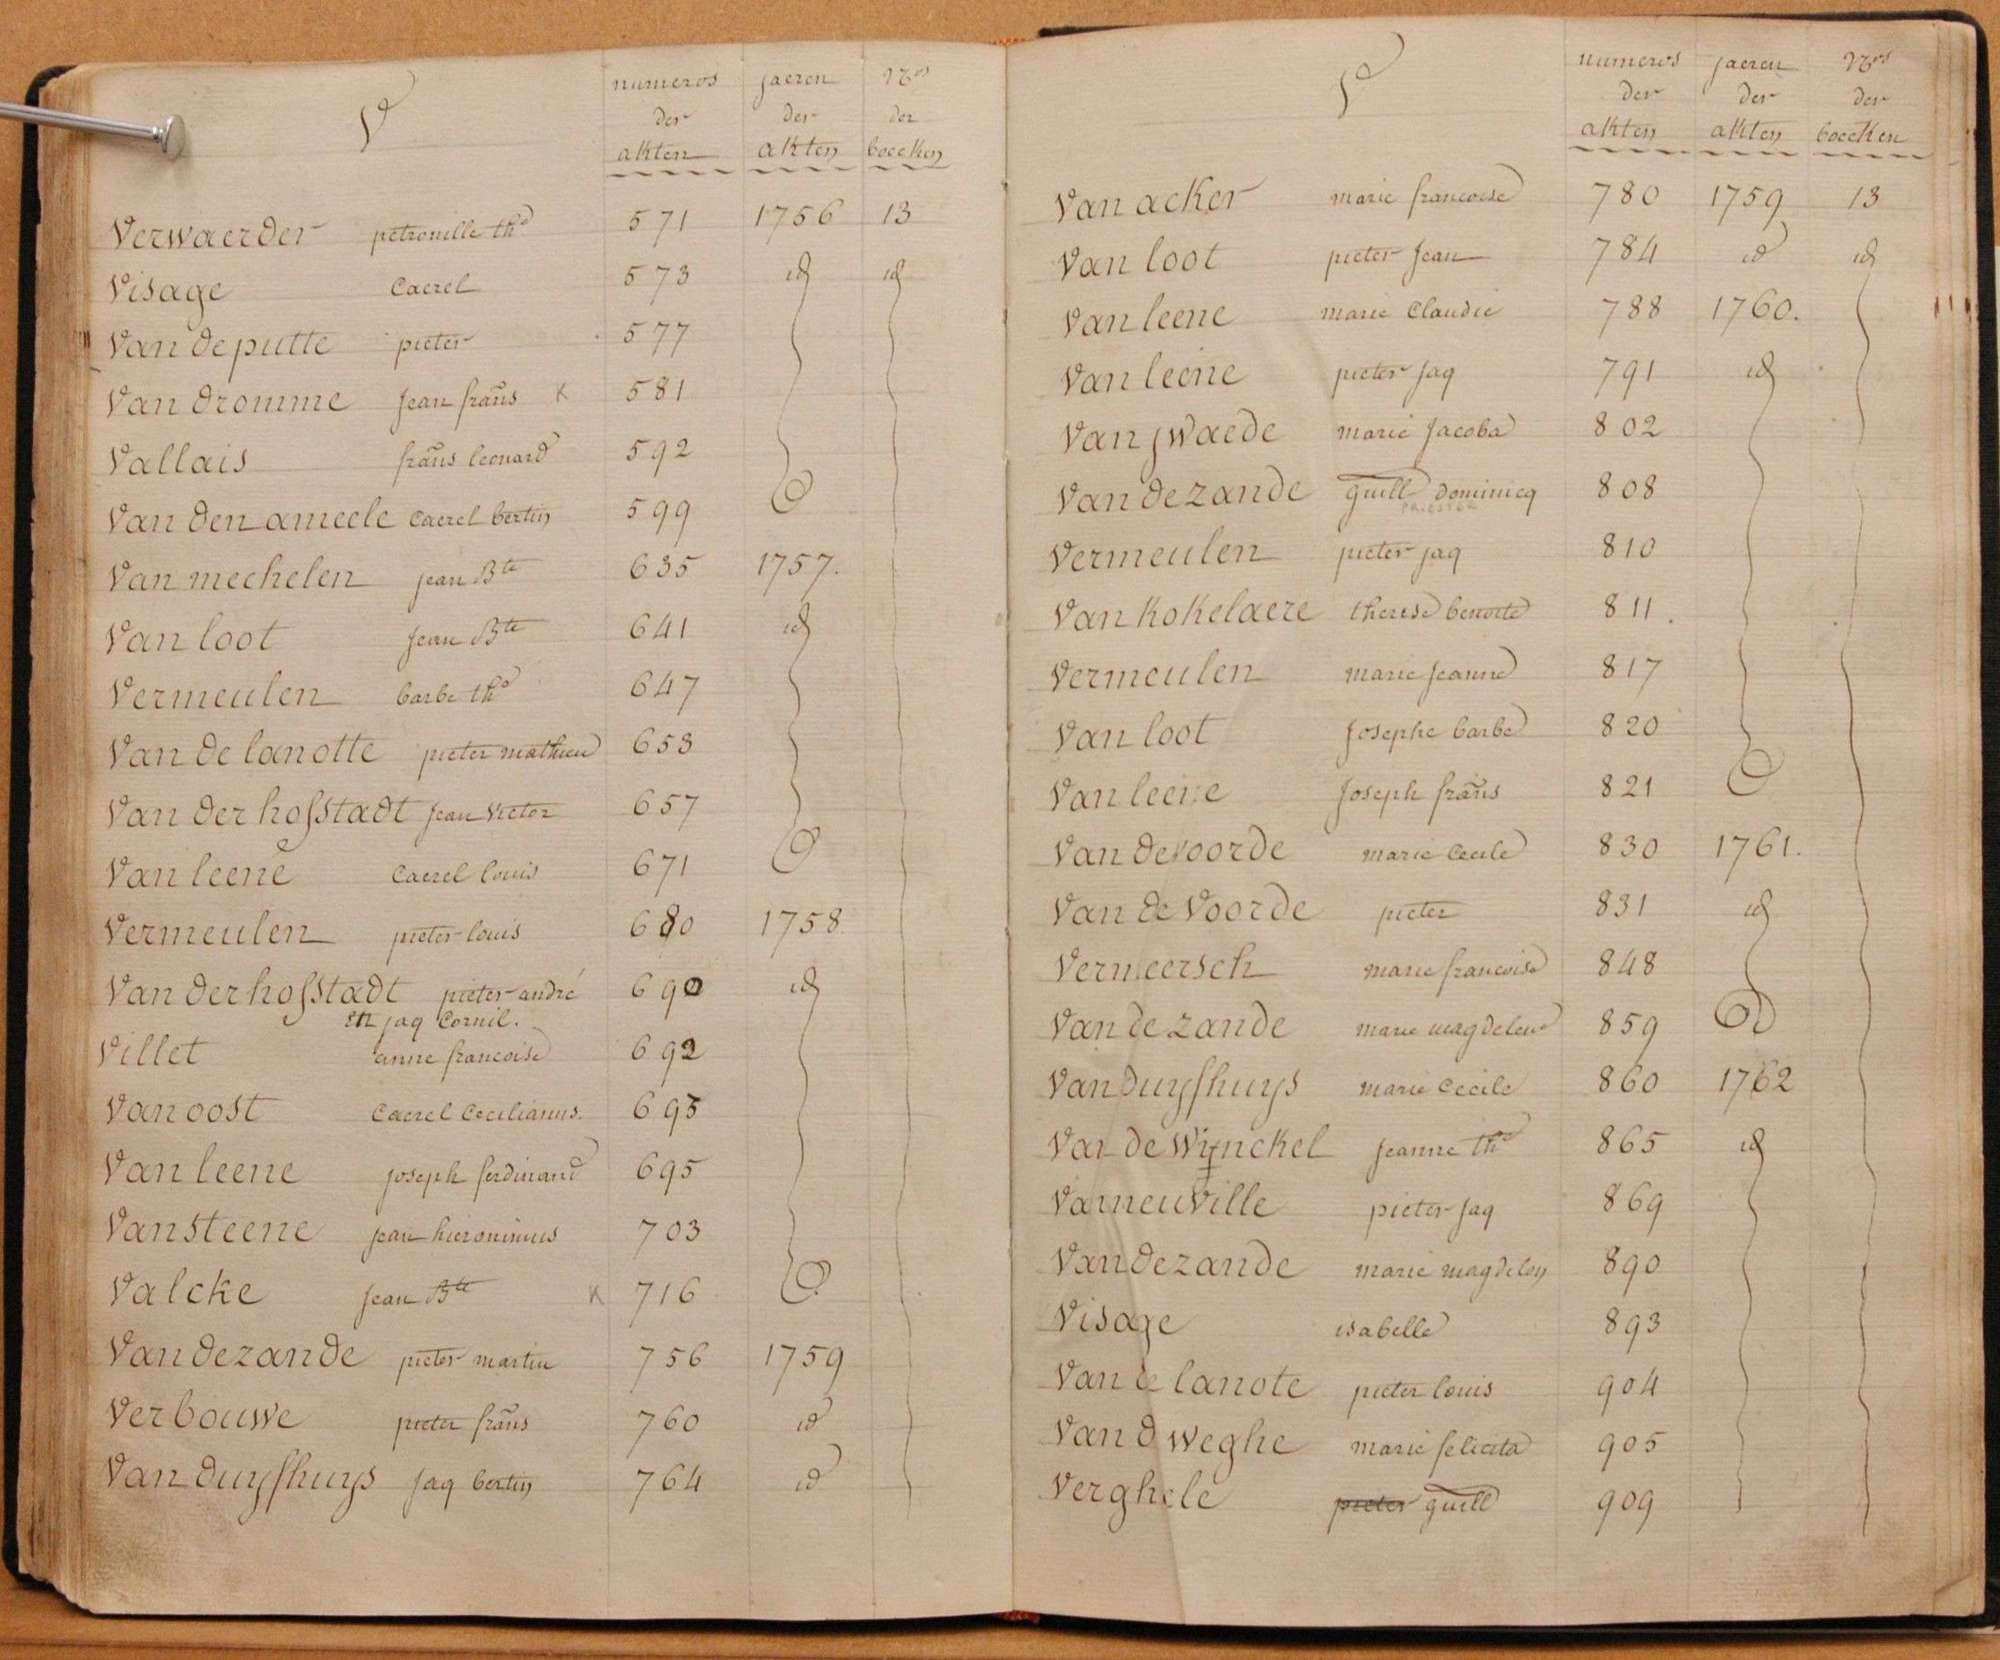 V numeros jaeren N.ros
der der der
akten akten boecken
Verwaerder petronille th.e 571 1756 13
Visage Caerel 573 id id
Van de putte pieter 577
Van dromme jean frañs K 581
Vallais frañs leonard 592
Van den ameele Caerel bertin 599
Van mechelen jean B.te 635 1757.
Van loot jean B.te 641 id
Vermeulen barbe th.e 647
Van de lanotte pieter mathieu 653
Van der hofstadt jean Victor 657
Van leene Caerel louis 671
Vermeulen pieter louis 680 1758
Van der hofstadt pieter andré 690 id
en jaq Cornil.
Villet anne francoise 692
Van oost Caerel Cecilianus. 693
Van leene joseph ferdinand 695
Van steene jean hieronimus 703
Valcke jean B.te K 716
Van de zande pieter martin 756 1759
Verbouwe pieter frañs 760 id
Van duyfhuys jaq bertin 764 id
V numeros jaeren N.ros
der der der
akten akten boecken
Van acker marie francoise 780 1759 13
Van loot pieter jean 784 id id
Van leene marie Claudie 788 1760.
Van leene pieter jaq 791 id
Van jwaede marie jacoba 802
Van de zande guill dominicq 808
PRIESTER
Vermeulen pieter jaq 810
Van Kokelaere therese benoite 811.
Vermeulen marie jeanne 817
Van loot josephe barbe 820
Van leene joseph frañs 821
Van de voorde marie Cecile 830 1761.
Van de Voorde pieter 831 id
Vermeersch marie francoise 848
Van de zande marie magdelene 859
Van duyfhuys marie Cecile 860 1762
Van de Wynckel jeanne th.e 865 id
Varneuville pieter jaq 869
Van de zande marie magdelen 890
Visage isabelle 893
Van de lanote pieter louis 904
Van d weghe marie felicita 905
Verghele pieter guill 909